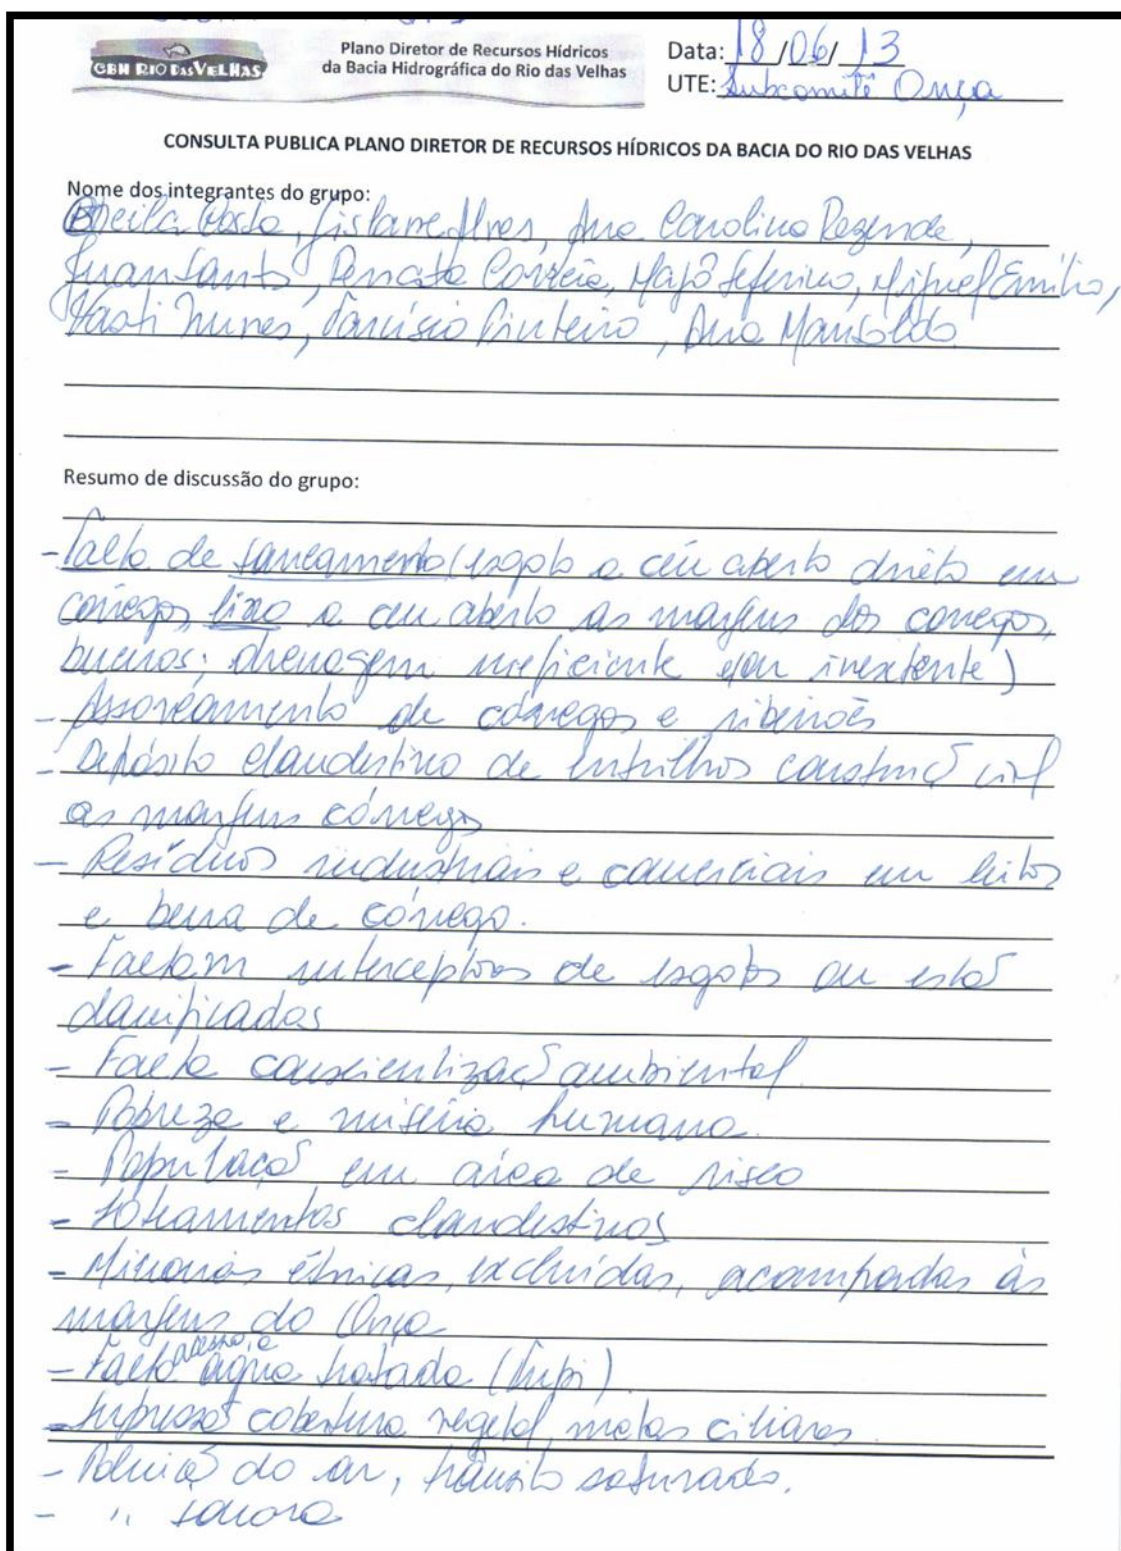 CBH RIO DAS VELHAS
Plano Diretor de Recursos Hídricos
da Bacia Hidrográfica do Rio das Velhas
Data: 18/06/13
UTE: Subcomitê Onça
CONSULTA PUBLICA PLANO DIRETOR DE RECURSOS HÍDRICOS DA BACIA DO RIO DAS VELHAS
Nome dos integrantes do grupo:
Sheila Costa, Gislane Alves, Ana Carolina Rezende,
Juan Santos, Renata Correia, Majô Zeferino, Miguel Emílio,
Vasti Nunes, Tarcísio Pinheiro, Ana Mansoldo
Resumo de discussão do grupo:
- Falta de saneamento (esgoto a céu aberto direto em
córregos, lixo a ceu aberto as margens dos córregos,
bueiros; drenagem ineficiente e/ou inexistente)
- Assoreamento de córregos e ribeirões
- Depósito clandestino de entulhos construçã civil
as margens córregos
- Resíduos industriais e comerciais em leitos
e beira de córrego.
- Faltam interceptores de esgotos ou estão
danificados
- Falta conscientizaçã ambiental
- Pobreza e miséria humana.
- População em área de risco
- Loteamentos clandestinos
- Minorias étnicas, excluídas, acampadas às
margens do Onça
- Falta acesso a água tratada (Tupi)
- Supressão cobertura vegetal, matas ciliares
- Poluição do ar, trânsito saturado.
- " sonora